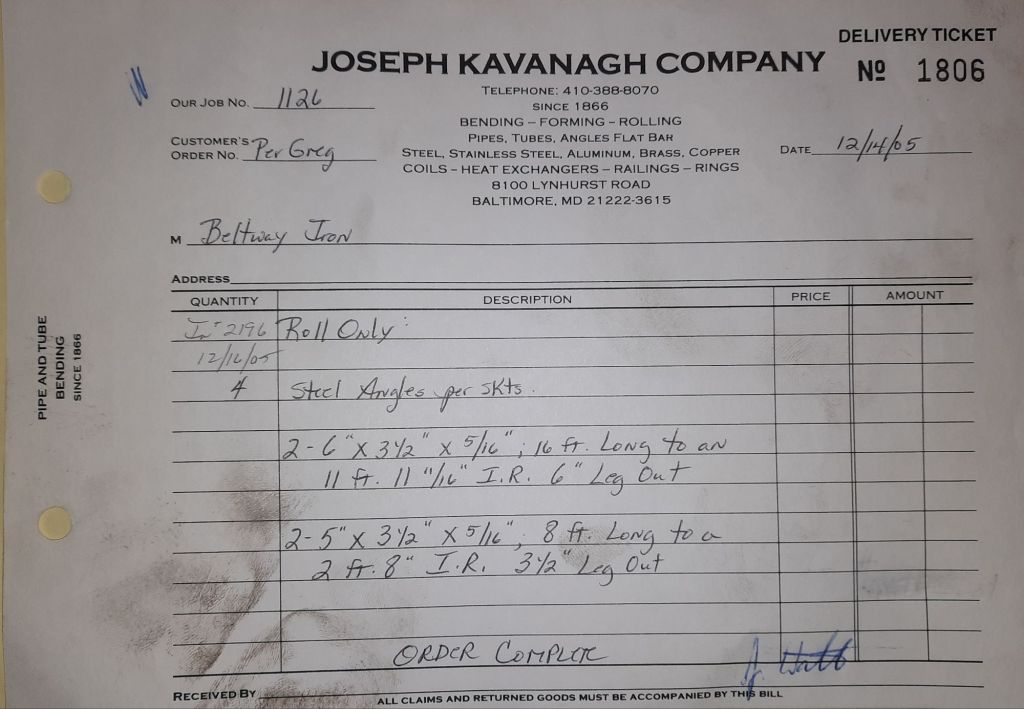 DELIVERY TICKET
JOSEPH KAVANAGH COMPANY
Nº 1806
TELEPHONE: 410-388-8070
SINCE 1866
BENDING – FORMING – ROLLING
PIPES, TUBES, ANGLES FLAT BAR
STEEL, STAINLESS STEEL, ALUMINUM, BRASS, COPPER
COILS – HEAT EXCHANGERS – RAILINGS – RINGS
8100 LYNHURST ROAD
BALTIMORE, MD 21222-3615
OUR JOB NO. 1126
CUSTOMER'S ORDER NO. Per Greg
DATE 12/14/05
M Beltway Iron
ADDRESS
QUANTITY DESCRIPTION PRICE AMOUNT
2196 Roll Only:
4 Steel Angles per skts.
2-6" X 3 1/2" X 5/16"; 16 ft. Long to an
11 ft. 11 11/16" I.R. 6" Leg Out
2-5" X 3 1/2" X 5/16", 8 ft. Long to a
2 ft. 8" I.R. 3 1/2" Leg Out
ORDER COMPLETE
RECEIVED BY
ALL CLAIMS AND RETURNED GOODS MUST BE ACCOMPANIED BY THIS BILL
PIPE AND TUBE
BENDING
SINCE 1866